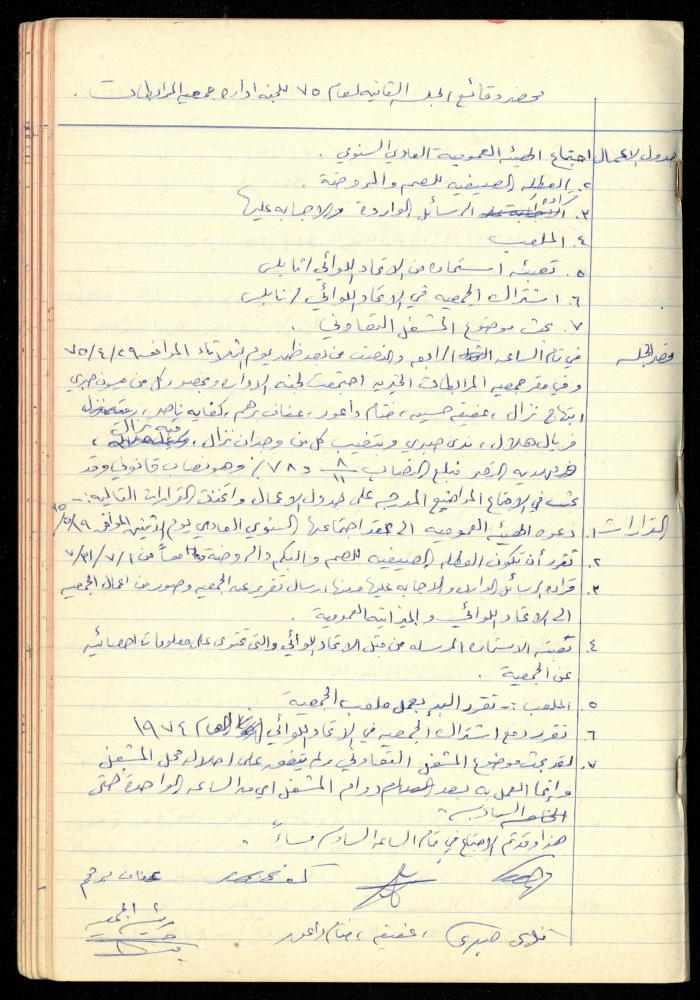 محضر وقائع الجلسة الثانية لعام ٧٥ للجنة ادارة جمعية المرابطات .
جدول الاعمال ١. اجتماع الهيئة العمومية العادي السنوي .
٢. العطلة الصيفية للصم والروضة .
٣. قراءة الرسائل الواردة والاجابه عليها
٤. الملعب
٥. تعبئة استمارة من الاتحاد اللوائي / نابلس
٦. اشتراك الجمعيه في الاتحاد اللوائي / نابلس
٧. بحث موضوع المشغل التعاوني .
محضر الجلسه في تمام الساعه الرابعه والنصف من بعد ظهر يوم الثلاثاء الموافق ٧٥/٤/٢٩
وفي مقر جمعيه المرابطات الخيريه اجتمعت لجنة الاداره وبحضور كل من ميسون صبري
ابتهاج نزال ، عفيفه حسين ، ختام داعور ، عفاف برهم ، كفايه ناصر ،
فريال هلال ، ندى صبري وبتغيب كل من وجدان نزال ،
مهديه النمر فبلغ النصاب ٨/١١ و ٧٨٪ وهو نصاب قانوني وقد
بحث في الاجتماع المواضيع المدرجه على جدول الاعمال واتخذت القرارات التاليه :-
القرارات ١. دعوه الهيئه العموميه الى عقد اجتماعها السنوي العادي يوم الاثنين الموافق ٧٥/٥/١٩
٢. تقرر أن تكون العطله الصيفيه للصم والبكم والروضة معاً من ٧/١ / ٧/٣١
٣. قراءة الرسائل الوارده والاجابه عليها ومنها ارسال تقرير عن الجمعيه وصور من اعمال الجمعيه
الى الاتحاد اللوائي والميزانيه العمومية .
٤. تعبئة الاستماره المرسله من قبل الاتحاد اللوائي والتي تحتوي على معلومات احصائيه
عن الجمعية .
٥. الملعب :- تقرر البدء بعمل ملعب الجمعية
٦. تقرر دفع اشتراك الجمعيه في الاتحاد اللوائي لعام ١٩٧٤
٧. لقد بحث موضوع المشغل التعاوني ولم يتفق على احلاله محل المشغل
وإنما العمل به بعد دوام المشغل اي من الساعه الواحدة حتى
السادسه
هذا وقد تم الاجتماع في تمام الساعه السادسه مساءً .
عفاف برهم
رئيسة الجمعيه
ندى صبري ، عفيفه ، ختام داعور